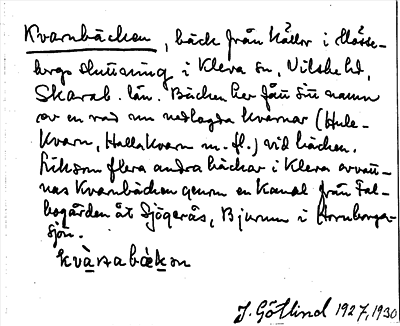 Kvarnbäcken, bäck från källor i Mösse-
bergs sluttning i Kleva sn, Vilske hd,
Skarab. län. Bäcken har fått sitt namn
av en rad nu nedlagda kvarnar (Hule-
kvarn, Hallakvarn m. fl.) vid bäcken.
Liksom flera andra bäckar i Kleva avvatt-
nas Kvarnbäcken genom en kanal från Fal-
bogården åt Sjögerås, Bjurum i Hornborga-
sjön.
kvànabækən
J. Götlind 1927, 1930